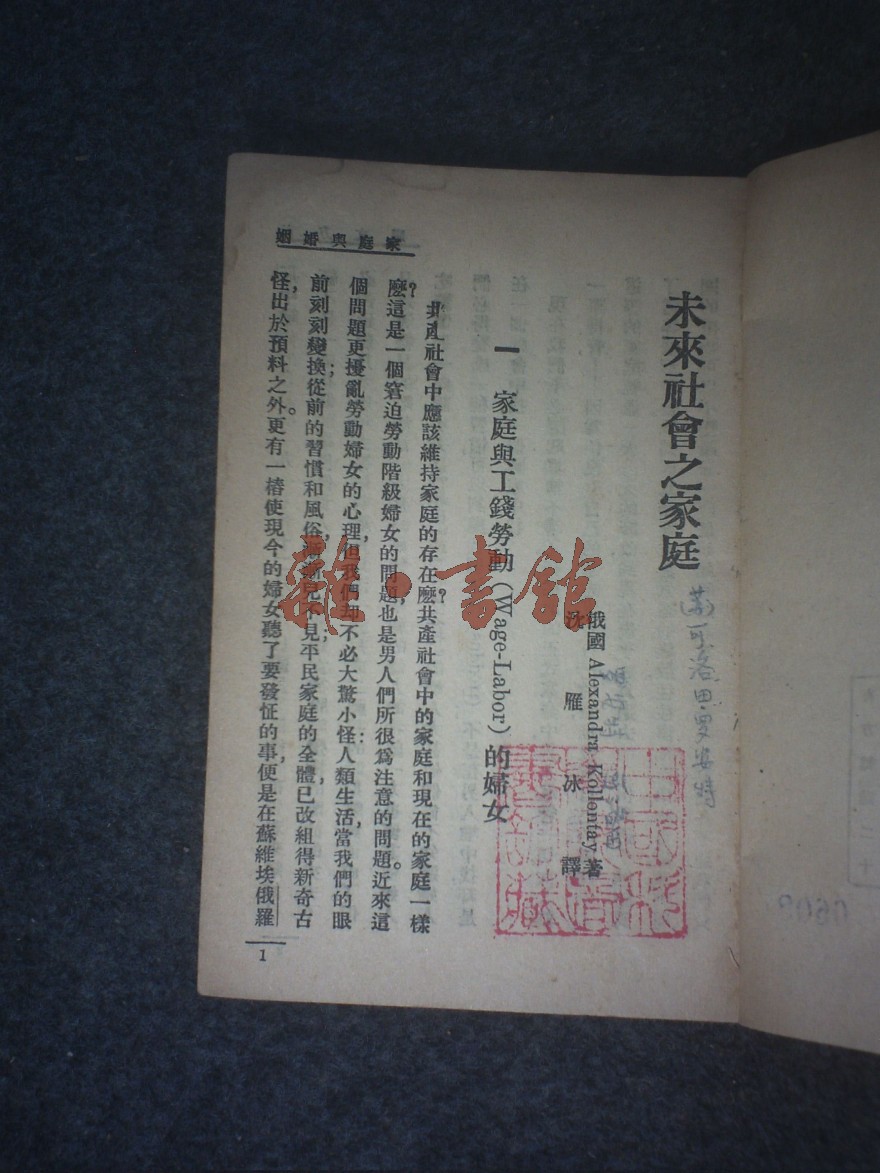 姻婚與庭家
未來社會之家庭
俄國 Alexandra Kollentay 著
沈雁冰 譯
一 家庭與工錢勞動(Wage-Labor)的婦女
共產社會中應該維持家庭的存在麽?共產社會中的家庭和現在的家庭一樣
麽?這是一個窘迫勞動階級婦女的問題,也是男人們所很爲注意的問題。近來這
個問題更擾亂勞動婦女的心理,但我們却不必大驚小怪:人類生活,當我們的眼
前刻刻變換;從前的習慣和風俗漸漸見不見;平民家庭的全體已改組得新奇古
怪,出於預料之外。更有一樁使現今的婦女聽了要發怔的事,便是在蘇維埃俄羅
1
雜·書館